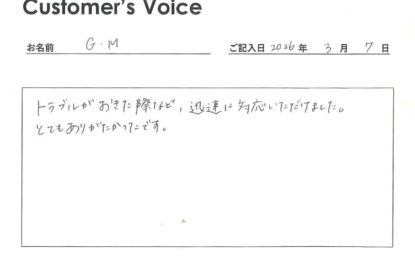 Customer's Voice
お名前 G・M ご記入日 2026 年 3 月 7 日
トラブルがおきた際など、迅速に対応いただけました。
とてもありがたかったです。